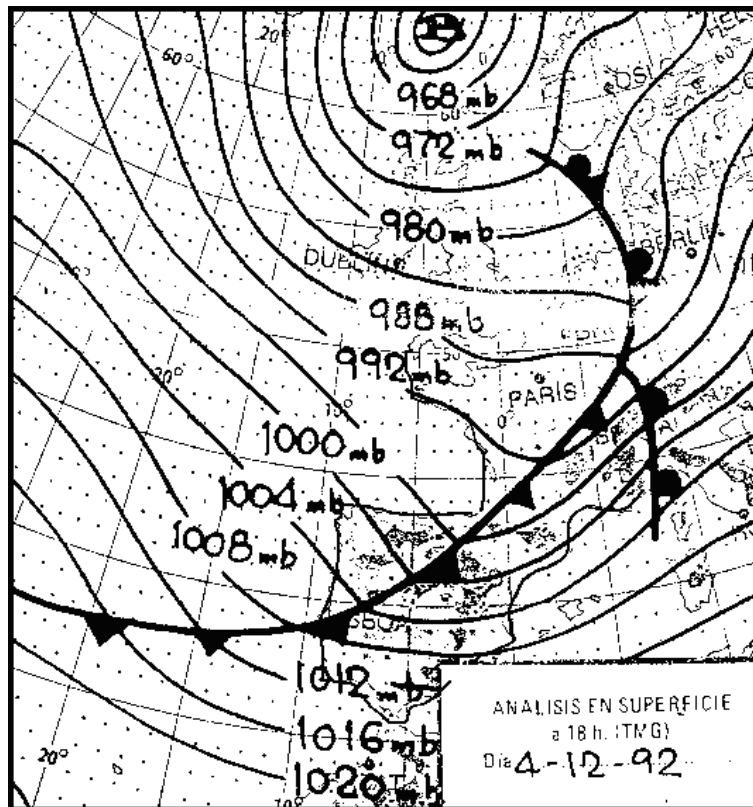 20°
60°
10°
0
OSLO
60
968 mb
60
972 mb
980 mb
BERLIN
DUBLIN
988 mb
50
992 mb
PARIS
20°
15°
0°
1000 mb
1004 mb
1008 mb
1012 mb
1016 mb
1020 mb
20°
10°
ANALISIS EN SUPERFICIE
a 18 h. (TMG)
Día 4-12-92